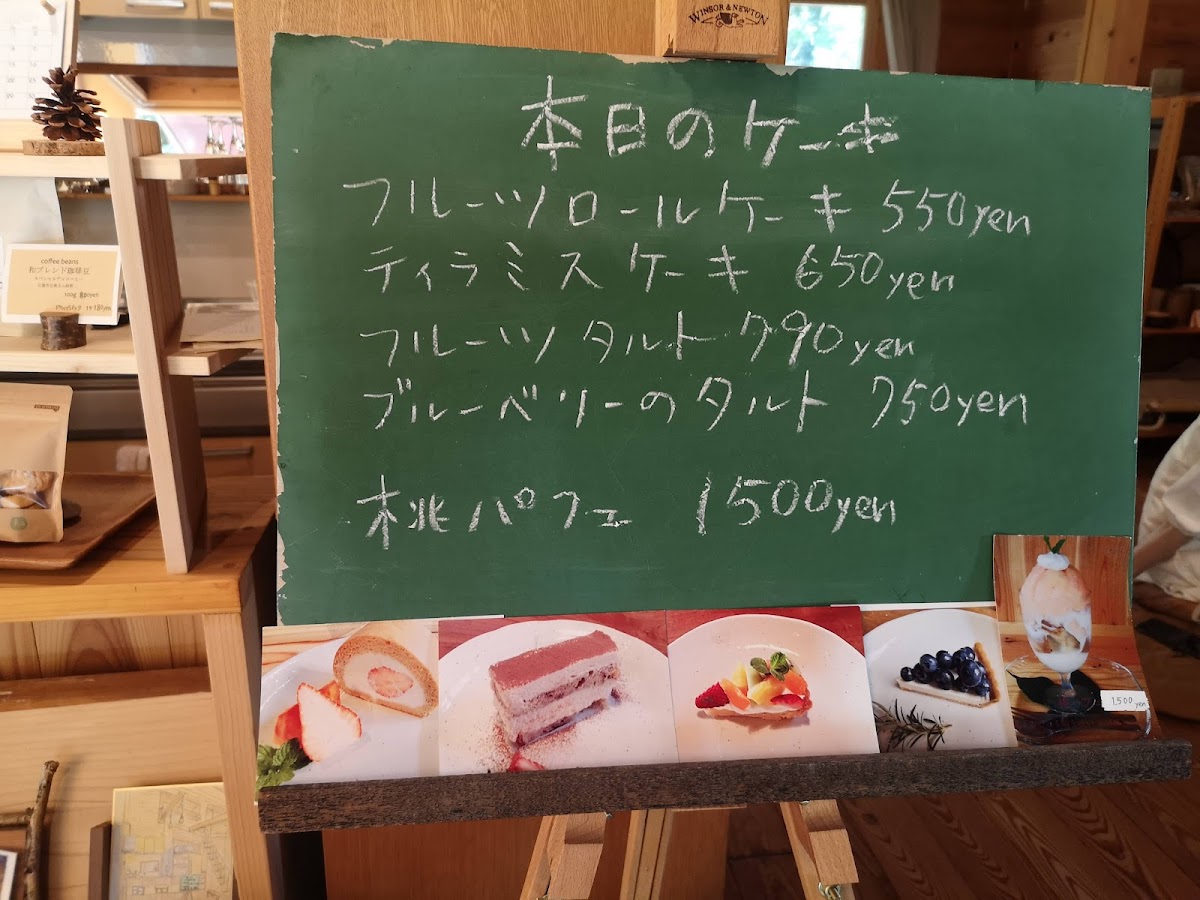 WINSOR & NEWTON
本日のケーキ
フルーツロールケーキ 550yen
ティラミスケーキ 650yen
フルーツタルト 790yen
ブルーベリーのタルト 750yen
桃パフェ 1500yen
1,500 yen
coffee beans
和ブレンド珈琲豆
100g
180yen